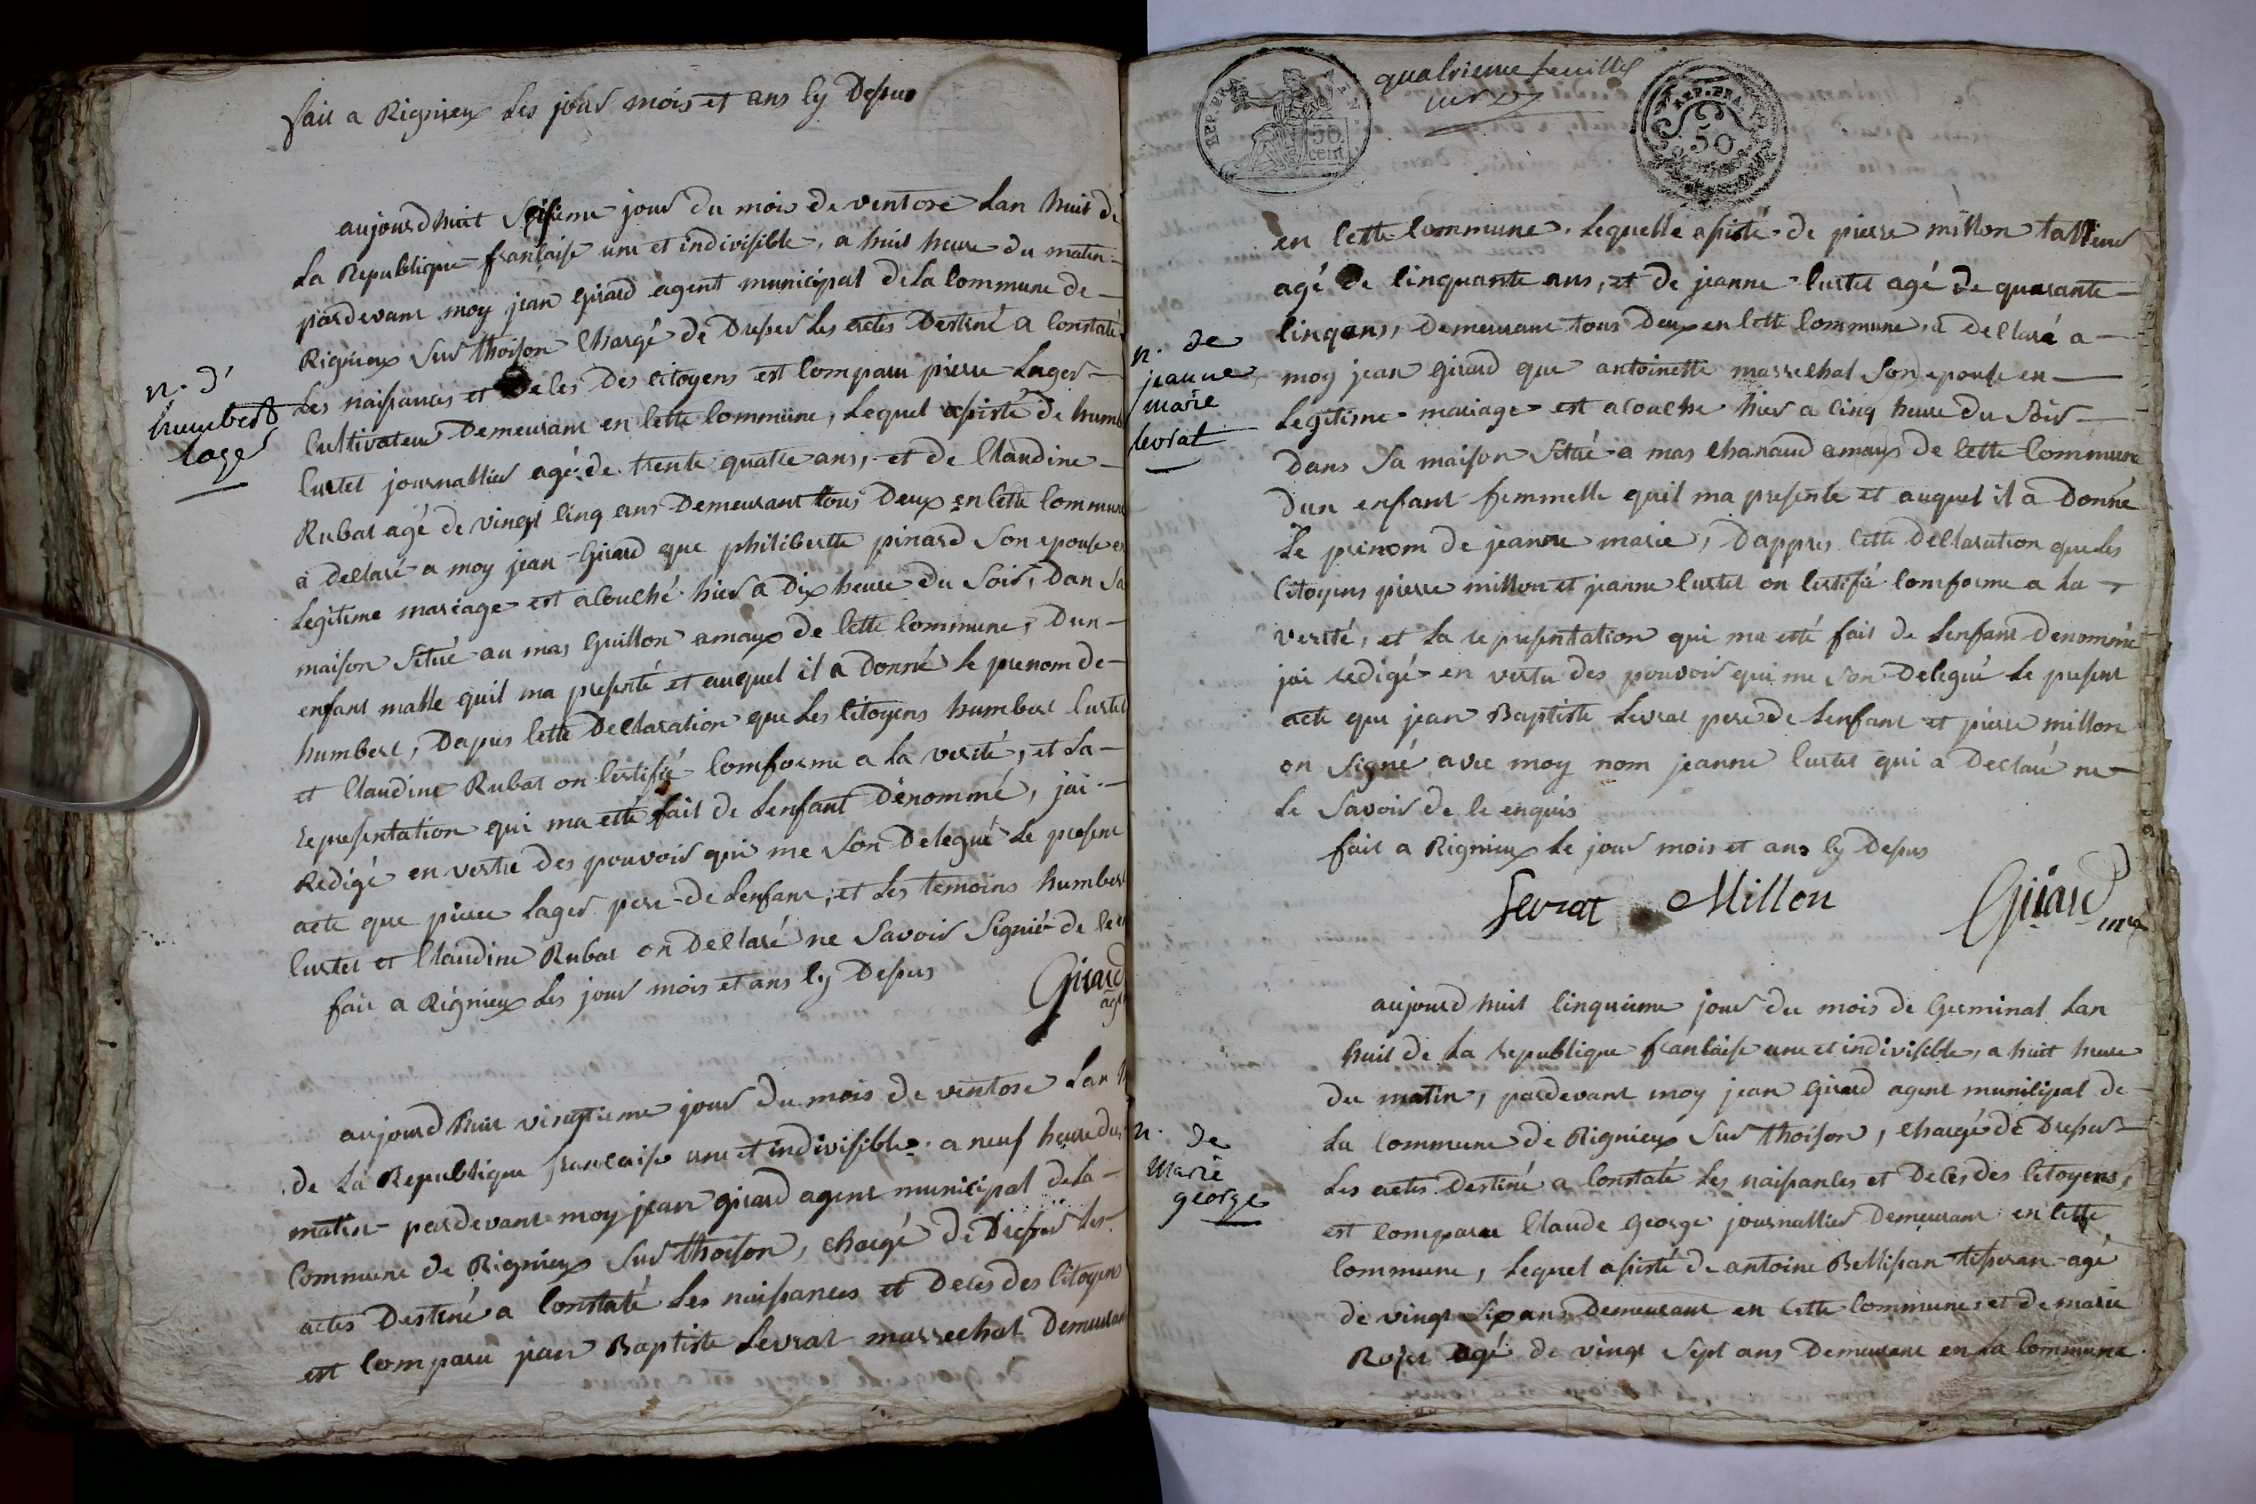 fait a Rignieux Les jour mois et ans Cy Dessus
aujourdhuit Sisieme jour du mois de ventose Lan huit de
La Republique francaise une et indivisible, a huit heure du matin
pardevant moy jean Girard agent municipal de La Commune de
Rignieux Sur thoison Chargé de Dresser Les actes Destiné a Constaté
Les naissances et Deces Des Citoyens est Comparu pierre Lager
n. d'
humbert
lager
Cultivateur Demeurant en Cette Commune, Lequel assisté de humb
Curtet journallier agé de trente quatre ans, et de Claudine
Rubat agé de vingt Cinq ans Demeurant tous Deux en Cette Commune
a Declaré a moy jean Girard que philiberte pinard Son epouse en
Legitime mariage est acouché hier a Dix heure du Soir, Dan Sa
maison Situé au mas Guillon amaux de Cette Commune, Dun
enfant malle quil ma presenté et auquel il a Donné Le prenom de
humbert, Dapres Cette Declaration que Les Citoyens humbert Curtet
et Claudine Rubat on Certifié Comforme a La verité, et La
representation qui ma etté fait de Lenfant Dénommé, jai
Redigé en vertu des pouvoir qui me Son Delegué Le present
acte que pierre Lager pere de Lenfant, et Les temoins humbert
Curtet et Claudine Rubat on Declaré ne Savoir Signié de
fait a Rignieux Les jour mois et ans Cy Dessus
Girard
ag
aujourdhuit vingtieme jour du mois de ventose Lan
de La Republique francaise une et indivisible. a neuf heure du
matin pardevant moy jean girard agent municipal de La
Commune de Rignieux Sur thoison, chargé de Dresser Les
actes Destiné a Constaté Les naissances et Deces des Citoyens
est Comparu jean Baptiste Levrat marrechal Demeurant
REP. FRA.
50
cent
quatrieme feuille
REP. FRA.
50
en Cette Commune. Lequelle assisté de pierre millon tallieur
agé de Cinquante ans, et de jeanne Curtet agé de quarante
Cinq ans, Demeurant tous Deux en Cette Commune, a Declaré a
n. de
jeanne
marie
levrat
moy jean Girard que antoinette marrechal Son epouse en
Legitime mariage est acouche hier a Cinq heure du Soir
Dans Sa maison Situé a mas Chanaud amaux de Cette Commune
Dun enfant femmelle quil ma presente et auquel il a Donné
Le prenom de jeanne marie, Dappres Cette Declaration que Les
Citoyens pierre millon et jeanne Curtet on Certifié Comforme a La
verité, et La representation qui ma etté fait de Lenfant Denommé
jai redigé en vertu des pouvoir qui me Son Delegué Le present
acte que jean Baptiste Levrat pere de Lenfant et pierre millon
on Signé avec moy nom jeanne Curtet qui a Declaré ne
Le Savoir de Ce enquis
fait a Rignieux Le jour mois et ans Cy Dessus
Levrat Millon Girard
aujourdhuit Cinquieme jour du mois de Germinal Lan
huit de La republique francaise une et indivisible, a huit heure
du matin, pardevant moy jean Girard agent municipal de
La Commune de Rignieux Sur thoison, Chargé de Dresser
n. de
Marie
george
Les actes Destiné a Constaté Les naissances et Deces des Citoyens,
est Comparu Claude George journallier Demeurant en Cette
Commune, Lequel assisté de antoine Bellissan tisseran agé
de vingt Six ans Demeurant en Cette Commune et de marie
agé de vingt Sept ans Demeurant en La Commune.